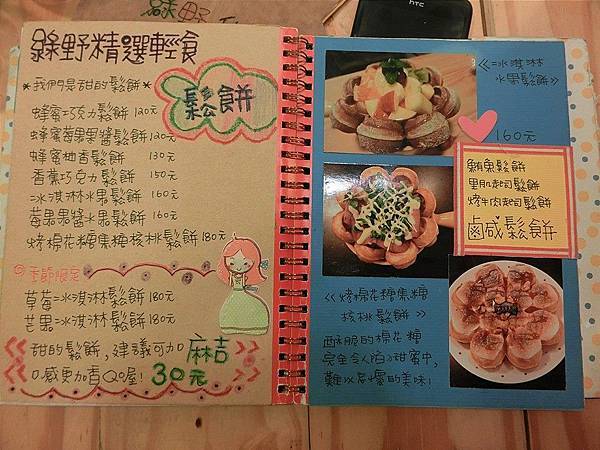 綠野
hTC
綠野精選輕食
*我們是甜的鬆餅*
鬆餅
蜂蜜巧克力鬆餅 120元
蜂蜜莓果果醬鬆餅 120元
蜂蜜柚香鬆餅 130元
香蕉巧克力鬆餅 150元
冰淇淋水果鬆餅 160元
莓果果醬水果鬆餅 160元
烤棉花糖焦糖核桃鬆餅 180元
季節限定
草莓冰淇淋鬆餅 180元
芒果冰淇淋鬆餅 180元
甜的鬆餅,建議可加 麻吉
口感更加青QQ喔! 30元
《冰淇淋
水果鬆餅》
160元
鮪魚鬆餅
里肌起司鬆餅
烤牛肉起司鬆餅
鹵咸鬆餅
《烤棉花糖焦糖
核桃鬆餅》
酥脆的棉花糖
完全令人陷入甜蜜中,
難以忘懷的美味!